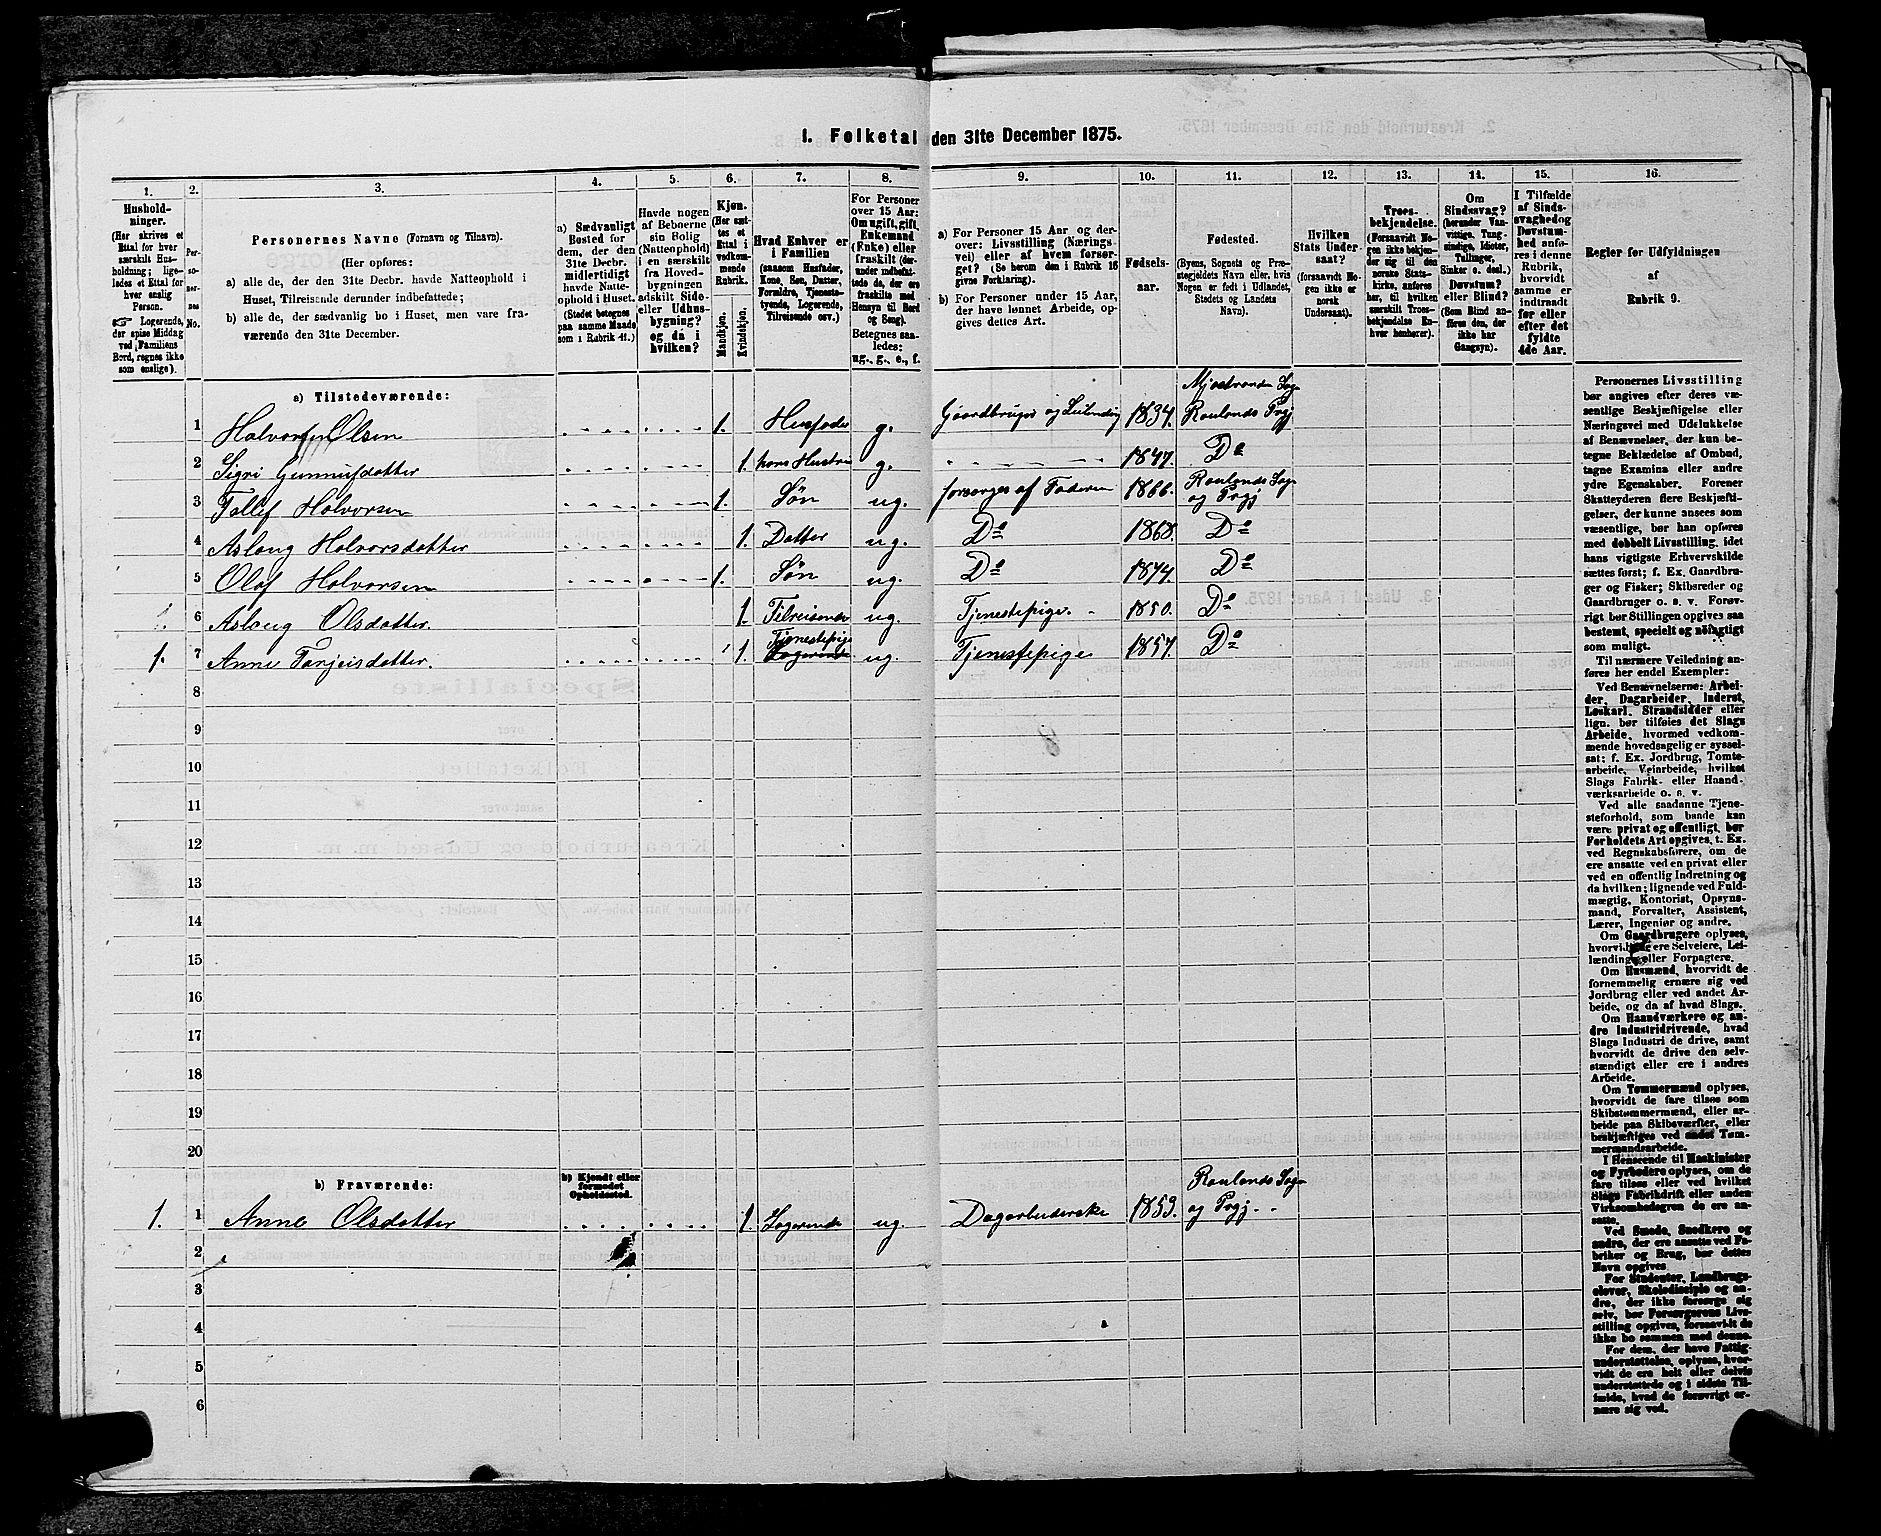 1. Folketal den 31te December 1875.
1. 2. 3. 4. 5. 6. 7. 8. 9. 10. 11. 12. 13. 14. 15. 16.
Hushold-
ninger.
(Her skrives et
Ettal for hver
særskilt Hus-
holdning; lige-
ledes et Ettal for
hver enslig
Person.
☞ Logerende,
der spise Middag
ved Familiens
Bord, regnes ikke
som enslige).
Per-
so-
ner-
nes
No.
Personernes Navne (Fornavn og Tilnavn).
(Her opføres:
a) alle de, der den 31te Decbr. havde Natteophold i
Huset, Tilreisende derunder indbefattede;
b) alle de, der sædvanlig bo i Huset, men vare fra-
værende den 31te December.
a) Sædvanligt
Bosted for
dem, der den
31te Decbr.
midlertidigt
havde Natte-
ophold i Huset.
(Stedet betegnes
paa samme Maade
som i Rubrik 11.)
Havde nogen
af Beboerne
sin Bolig
(Natteophold)
i en særskilt
fra Hoved-
bygningen
adskilt Side-
eller Udhus-
bygning?
og da i
hvilken?
Kjøn.
(Her sæt-
tes et
Ettal i
vedkom-
mende
Rubrik.
Mandkjøn.
Kvindekjøn.
Hvad Enhver er
i Familien
(saasom Husfader,
Kone, Søn, Datter,
Forældre, Tjeneste-
tyende, Logerende,
Tilreisende osv.)
For Personer
over 15 Aar:
Om ugift, gift,
Enkemand
(Enke) eller
fraskilt (der-
under indbefat-
tede de, der ere
fraskilte med
Hensyn til Bord
og Seng).
Betegnes saa-
ledes:
ug., g., e., f.
a) For Personer 15 Aar og der-
over: Livsstilling (Nærings-
vei) eller af hvem forsør-
get? (Se herom den i Rubrik 16
givne Forklaring).
b) For Personer under 15 Aar,
der have lønnet Arbeide, op-
gives dettes Art.
Fødsels-
aar.
Fødested.
(Byens, Sognets og Præ-
stegjeldets Navn eller, hvis
Nogen er født i Udlandet,
Stedets og Landets
Navn).
Hvilken
Stats Under-
saat?
(forsaavidt No-
gen ikke er
norsk
Undersaat).
Troes-
bekjendelse.
(Forsaavidt No-
gen ikke bekjen-
der sig til den
norske Stats-
kirke, anføres
her, til hvilken
særskilt Troes-
bekjendelse En-
hver henhører).
Om
Sindssvag?
(herunder Van-
vittige, Tung-
sindige, Idioter,
Tullinger,
Sinker o. desl.)
Døvstum?
eller Blind?
(Som Blind an-
føres den, der
ikke har
Gangsyn).
I Tilfælde
af Sinds-
svaghed og
Døvstum-
hed anfø-
res i denne
Rubrik,
hvorvidt
samme er
indtraadt
før eller
efter det
fyldte
4de Aar.
Regler for Udfyldningen
af
Rubrik 9.
a) Tilstedeværende:
Mjøstrandens Sogn
1 Halvor Olsen 1. Husfader g. Gaardbruger og Leilending 1834. Raulands Prgj
2 Sigri Gunnufsdatter 1. hans Hustru g. 1847. Do
3 Tallef Halvorsen 1. Søn ug. forsørges af Faderen 1866. Raulands Sogn og Prgj
4 Aslaug Halvorsdatter 1. Datter ug. Do 1868. Do
5 Olaf Halvorsen 1. Søn ug. Do 1874. Do
1. 6 Aslaug Olsdatter. 1. Tilreisende ug. Tjenestepige. 1850. Do
Tjenestepige
1. 7 Anne Tarjeisdatter. 1. Logerende ug. Tjenestepige 1857. Do
8
9
10
11
12
13
14
15
16
17
18
19
20
b) Fraværende:
b) Kjendt eller
formodet
Opholdssted.
1. 1 Anne Olsdatter 1. Logerende ug. Dagarbeiderske 1853. Raulands Sogn og Prgj.
2
3
4
5
6
Personernes Livsstilling
bør angives efter deres væ-
sentlige Beskjæftigelse eller
Næringsvei med Udelukkelse
af Benævnelser, der kun be-
tegne Beklædelse af Ombud,
tagne Examina eller andre
ydre Egenskaber. Forener
Skatteyderen flere Beskjæfti-
gelser, der kunne ansees som
væsentlige, bør han opføres
med dobbelt Livsstilling, idet
hans vigtigste Erhvervskilde
sættes først; f. Ex. Gaardbru-
ger og Fisker; Skibsreder og
Gaardbruger o. s. v. Forøv-
rigt bør Stillingen opgives saa
bestemt, specielt og nøiagtigt
som muligt.
Til nærmere Veiledning an-
føres her endel Exempler:
Ved Benævnelserne: Arbei-
der, Dagarbeider, Inderst,
Løskarl, Strandsidder eller
lign. bør tilføies det Slags
Arbeide, hvormed vedkom-
mende hovedsagelig er syssel-
sat: f. Ex. Jordbrug, Tomte-
arbeide, Veiarbeide, hvilket
Slags Fabrik- eller Haand-
værksarbeide o. s. v.
Ved alle saadanne Tjene-
steforhold, som baade kan
være privat og offentligt, bør
Forholdets Art opgives, t. Ex.
ved Regnskabsførere, om de
ere ansatte ved en privat eller
ved en offentlig Indretning og
da hvilken; lignende ved Fuld-
mægtig, Kontorist, Opsyns-
mand, Forvalter, Assistent,
Lærer, Ingeniør og andre.
Om Gaardbrugere oplyses,
hvorvidt de ere Selveiere, Lei-
lændinge eller Forpagtere.
Om Husmænd, hvorvidt de
fornemmelig ernære sig ved
Jordbrug eller ved andet Ar-
beide, og da af hvad Slags.
Om Haandværkere og an-
dre Industridrivende, hvad
Slags Industri de drive, samt
hvorvidt de drive den selv-
stændigt eller ere i andres
Arbeide.
Om Tømmermænd oplyses,
hvorvidt de fare tilsøs som
Skibstømmermænd, eller ar-
beide paa Skibsværfter, eller
beskjæftiges ved andet Tøm-
mermandsarbeide.
I Henseende til Maskinister
og Fyrbødere oplyses, om de
fare tilsøs eller ved hvilket
Slags Fabrikdrift eller anden
Virksomhed de ere an-
satte.
Ved Smede, Snedkere og
andre, der ere ansatte ved Fa-
briker og Brug, bør dettes
Navn opgives.
For Studenter, Landbrugs-
elever, Skoledisciple og an-
dre, der ikke forsørge sig
selv, bør Forsørgerens Livs-
stilling opgives, forsaavidt de
ikke bo sammen med denne.
For dem, der have Fattig-
understøttelse, oplyses, hvor-
vidt de ere helt eller delvis
understøttede og i sidste Til-
fælde, hvad de forøvrigt er-
nære sig ved.